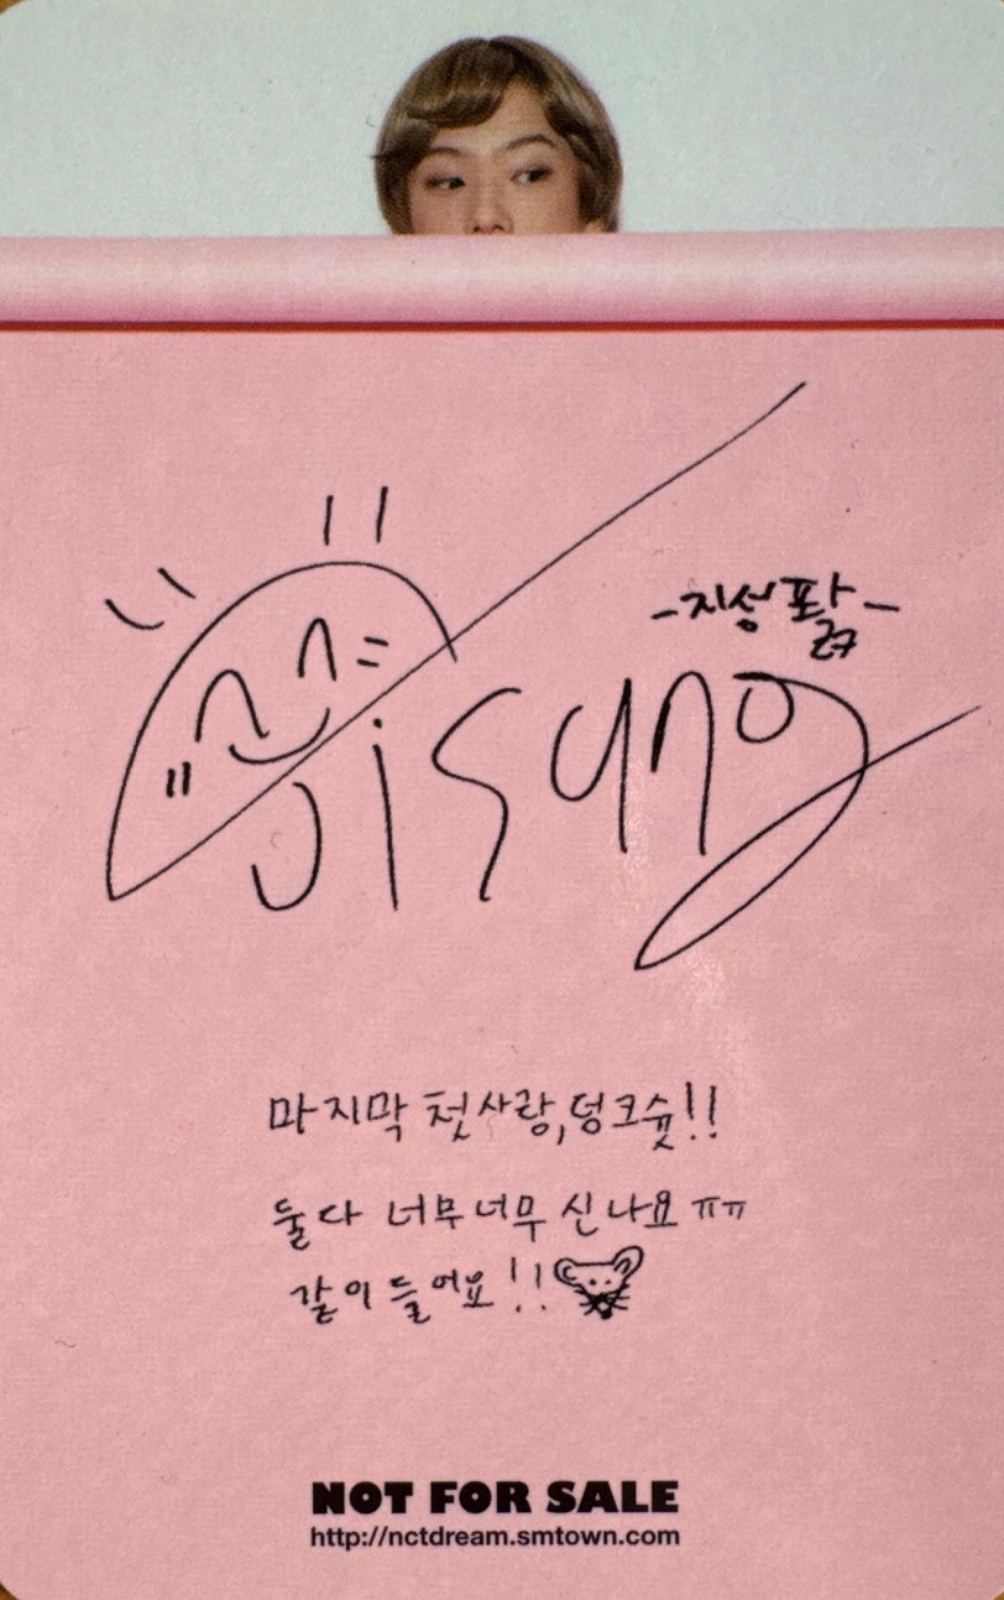 -지성팔ㅋㅋ-
Jisung
마지막 첫사랑, 덩크슛!!
둘다 너무너무 신나요 ㅠㅠ
같이 들어요!!
NOT FOR SALE
http://nctdream.smtown.com